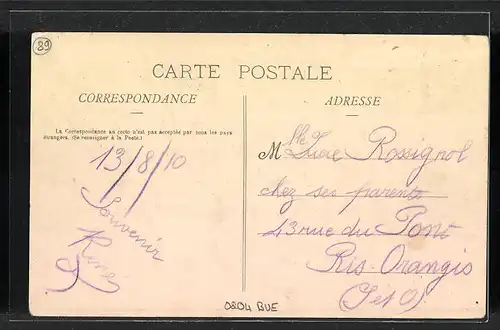 89
CARTE POSTALE
CORRESPONDANCE
La Correspondance au recto n'est pas acceptée par tous les pays
étrangers. (Se renseigner à la Poste.)
13/8/10
Souvenir
René
ADRESSE
Mlle Rossignol
chez ses parents
43 rue du Pont
Ris-Orangis
(S et O)
0204 BUE